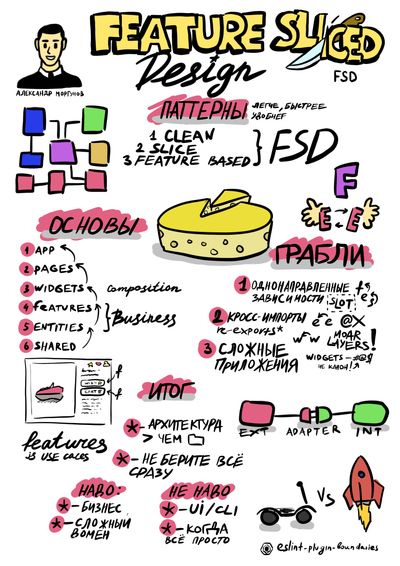 FEATURE SLICED
Design
FSD
АЛЕКСАНДР МОРГУНОВ
ПАТТЕРНЫ
ЛЕГЧЕ, БЫСТРЕЕ
УДОБНЕЕ
1 CLEAN
2 SLICE
3 FEATURE BASED
FSD
F
E E
ОСНОВЫ
1 APP
2 PAGES
3 WIDGETS
4 FEATURES
5 ENTITIES
6 SHARED
composition
Business
ГРАБЛИ
1 ОДНОНАПРАВЛЕННЫЕ
ЗАВИСИМОСТИ
SLOT
f
e
2 КРОСС-ИМПОРТЫ
re-exports*
e e @X
3 СЛОЖНЫЕ
ПРИЛОЖЕНИЯ
WFW MOAR
LAYERS!
WIDGETS
НЕ КАНОН!
f
f
features
IS USE CASES
ИТОГ
* - АРХИТЕКТУРА
> ЧЕМ
* - НЕ БЕРИТЕ ВСЁ
СРАЗУ
EXT ADAPTER INT
НАДО:
* - БИЗНЕС
* - СЛОЖНЫЙ
ДОМЕН
НЕ НАДО
* - UI/CLI
* - КОГДА
ВСЁ ПРОСТО
VS
eslint-plugin-boundaries